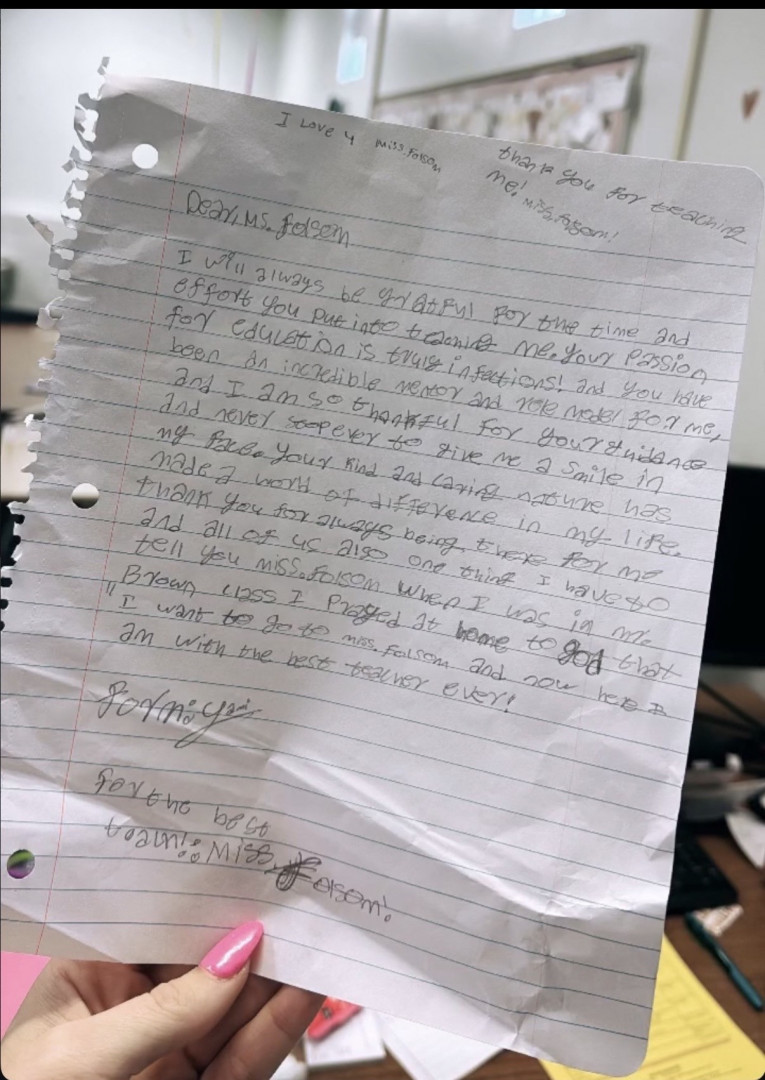 I Love y miss.Folsom
thank you for teaching
me! miss.Folsom!
Dear, Ms. folsom
I will always be gratful for the time and
effort you put into teaching me. your Passion
for education is truly infections! and you have
been an incredible mentor and role model for me,
and I am so thankful for your guidance
and never stop ever to give me a smile in
my face. your kind and caring nature has
made a world of difference in my life.
thank you for always being there for me
and all of us also one thing I have to
tell you miss.Folsom when I was in mr.
Brown class I Prayed at home to god that
"I want to go to miss.Folsom and now here I
am with the best teacher ever!
for the best
Miss Folsom!